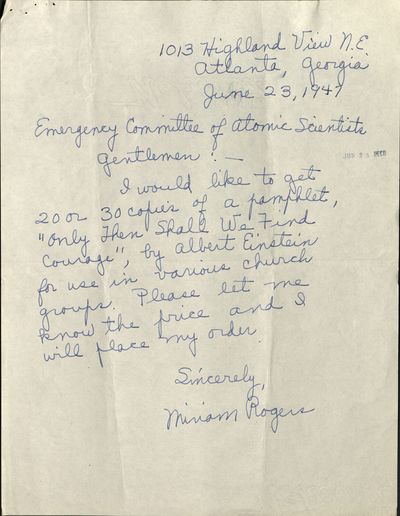 1013 Highland View N.E.
Atlanta, Georgia
June 23, 1947
Emergency Committee of Atomic Scientists
Gentlemen: —
I would like to get
20 or 30 copies of a pamphlet,
"Only Then Shall We Find
Courage", by Albert Einstein
for use in various church
groups. Please let me
know the price and I
will place my order.
Sincerely,
Miriam Rogers